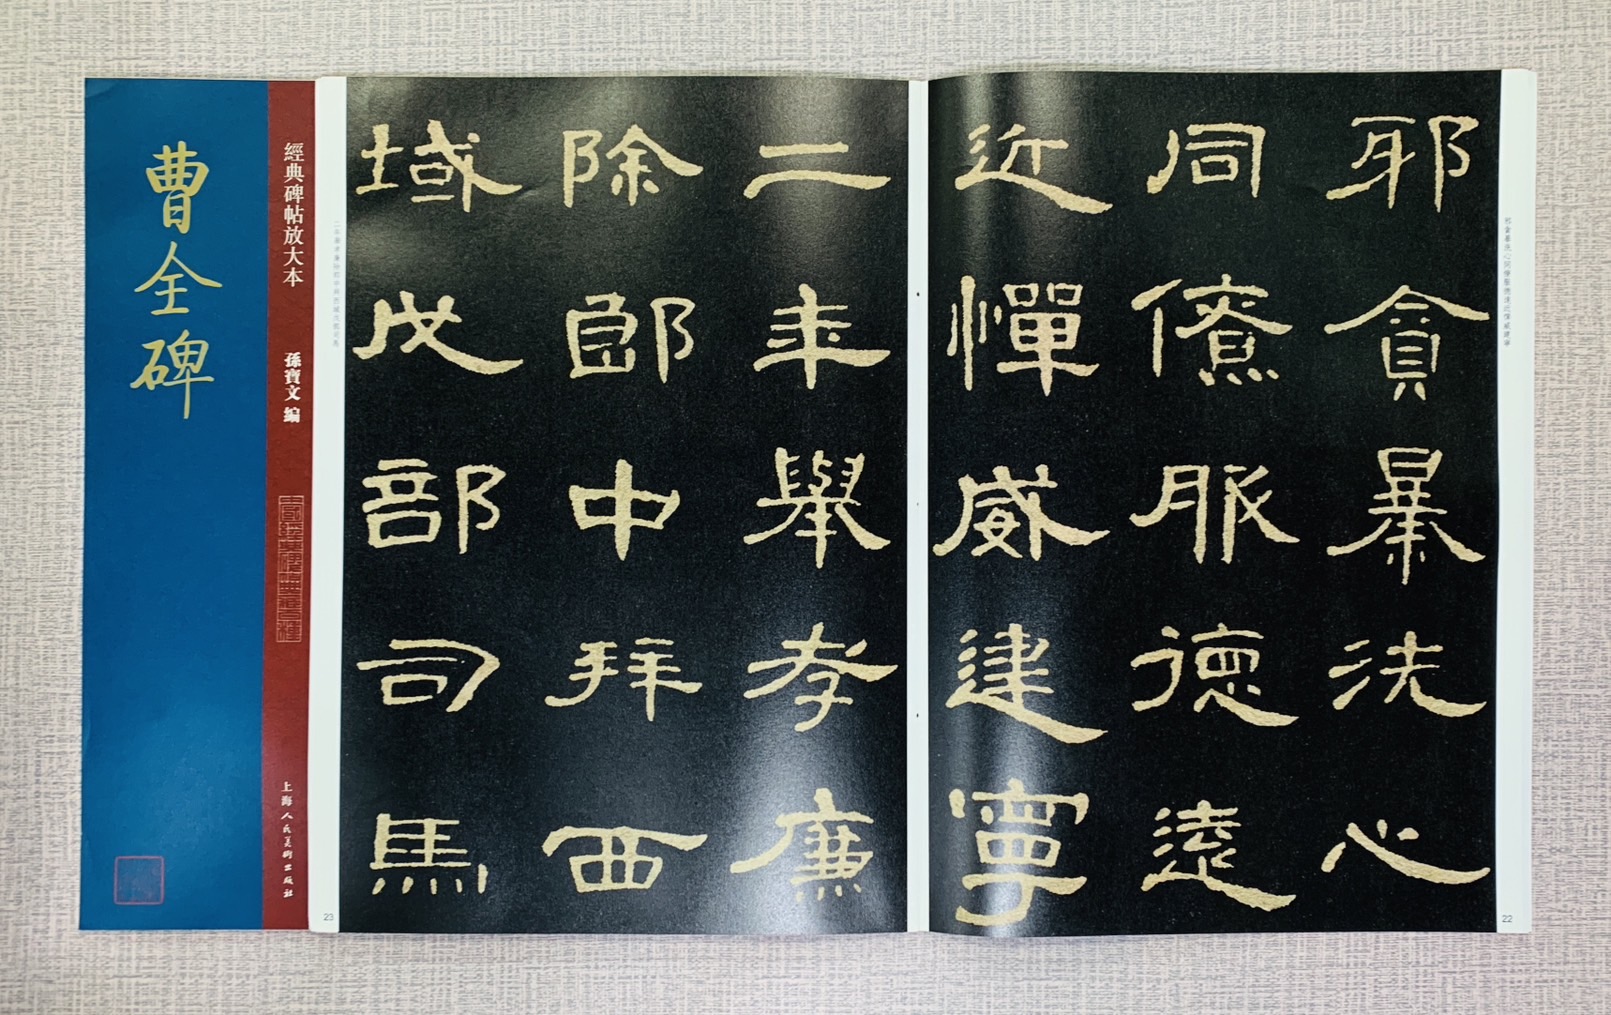 邪貪暴洗心
同僚服德遠
近憚威建寧
二年舉孝廉
除郎中拜西
域戊部司馬
曹全碑
經典碑帖放大本
孫寶文 編
上海人民美術出版社
22
23